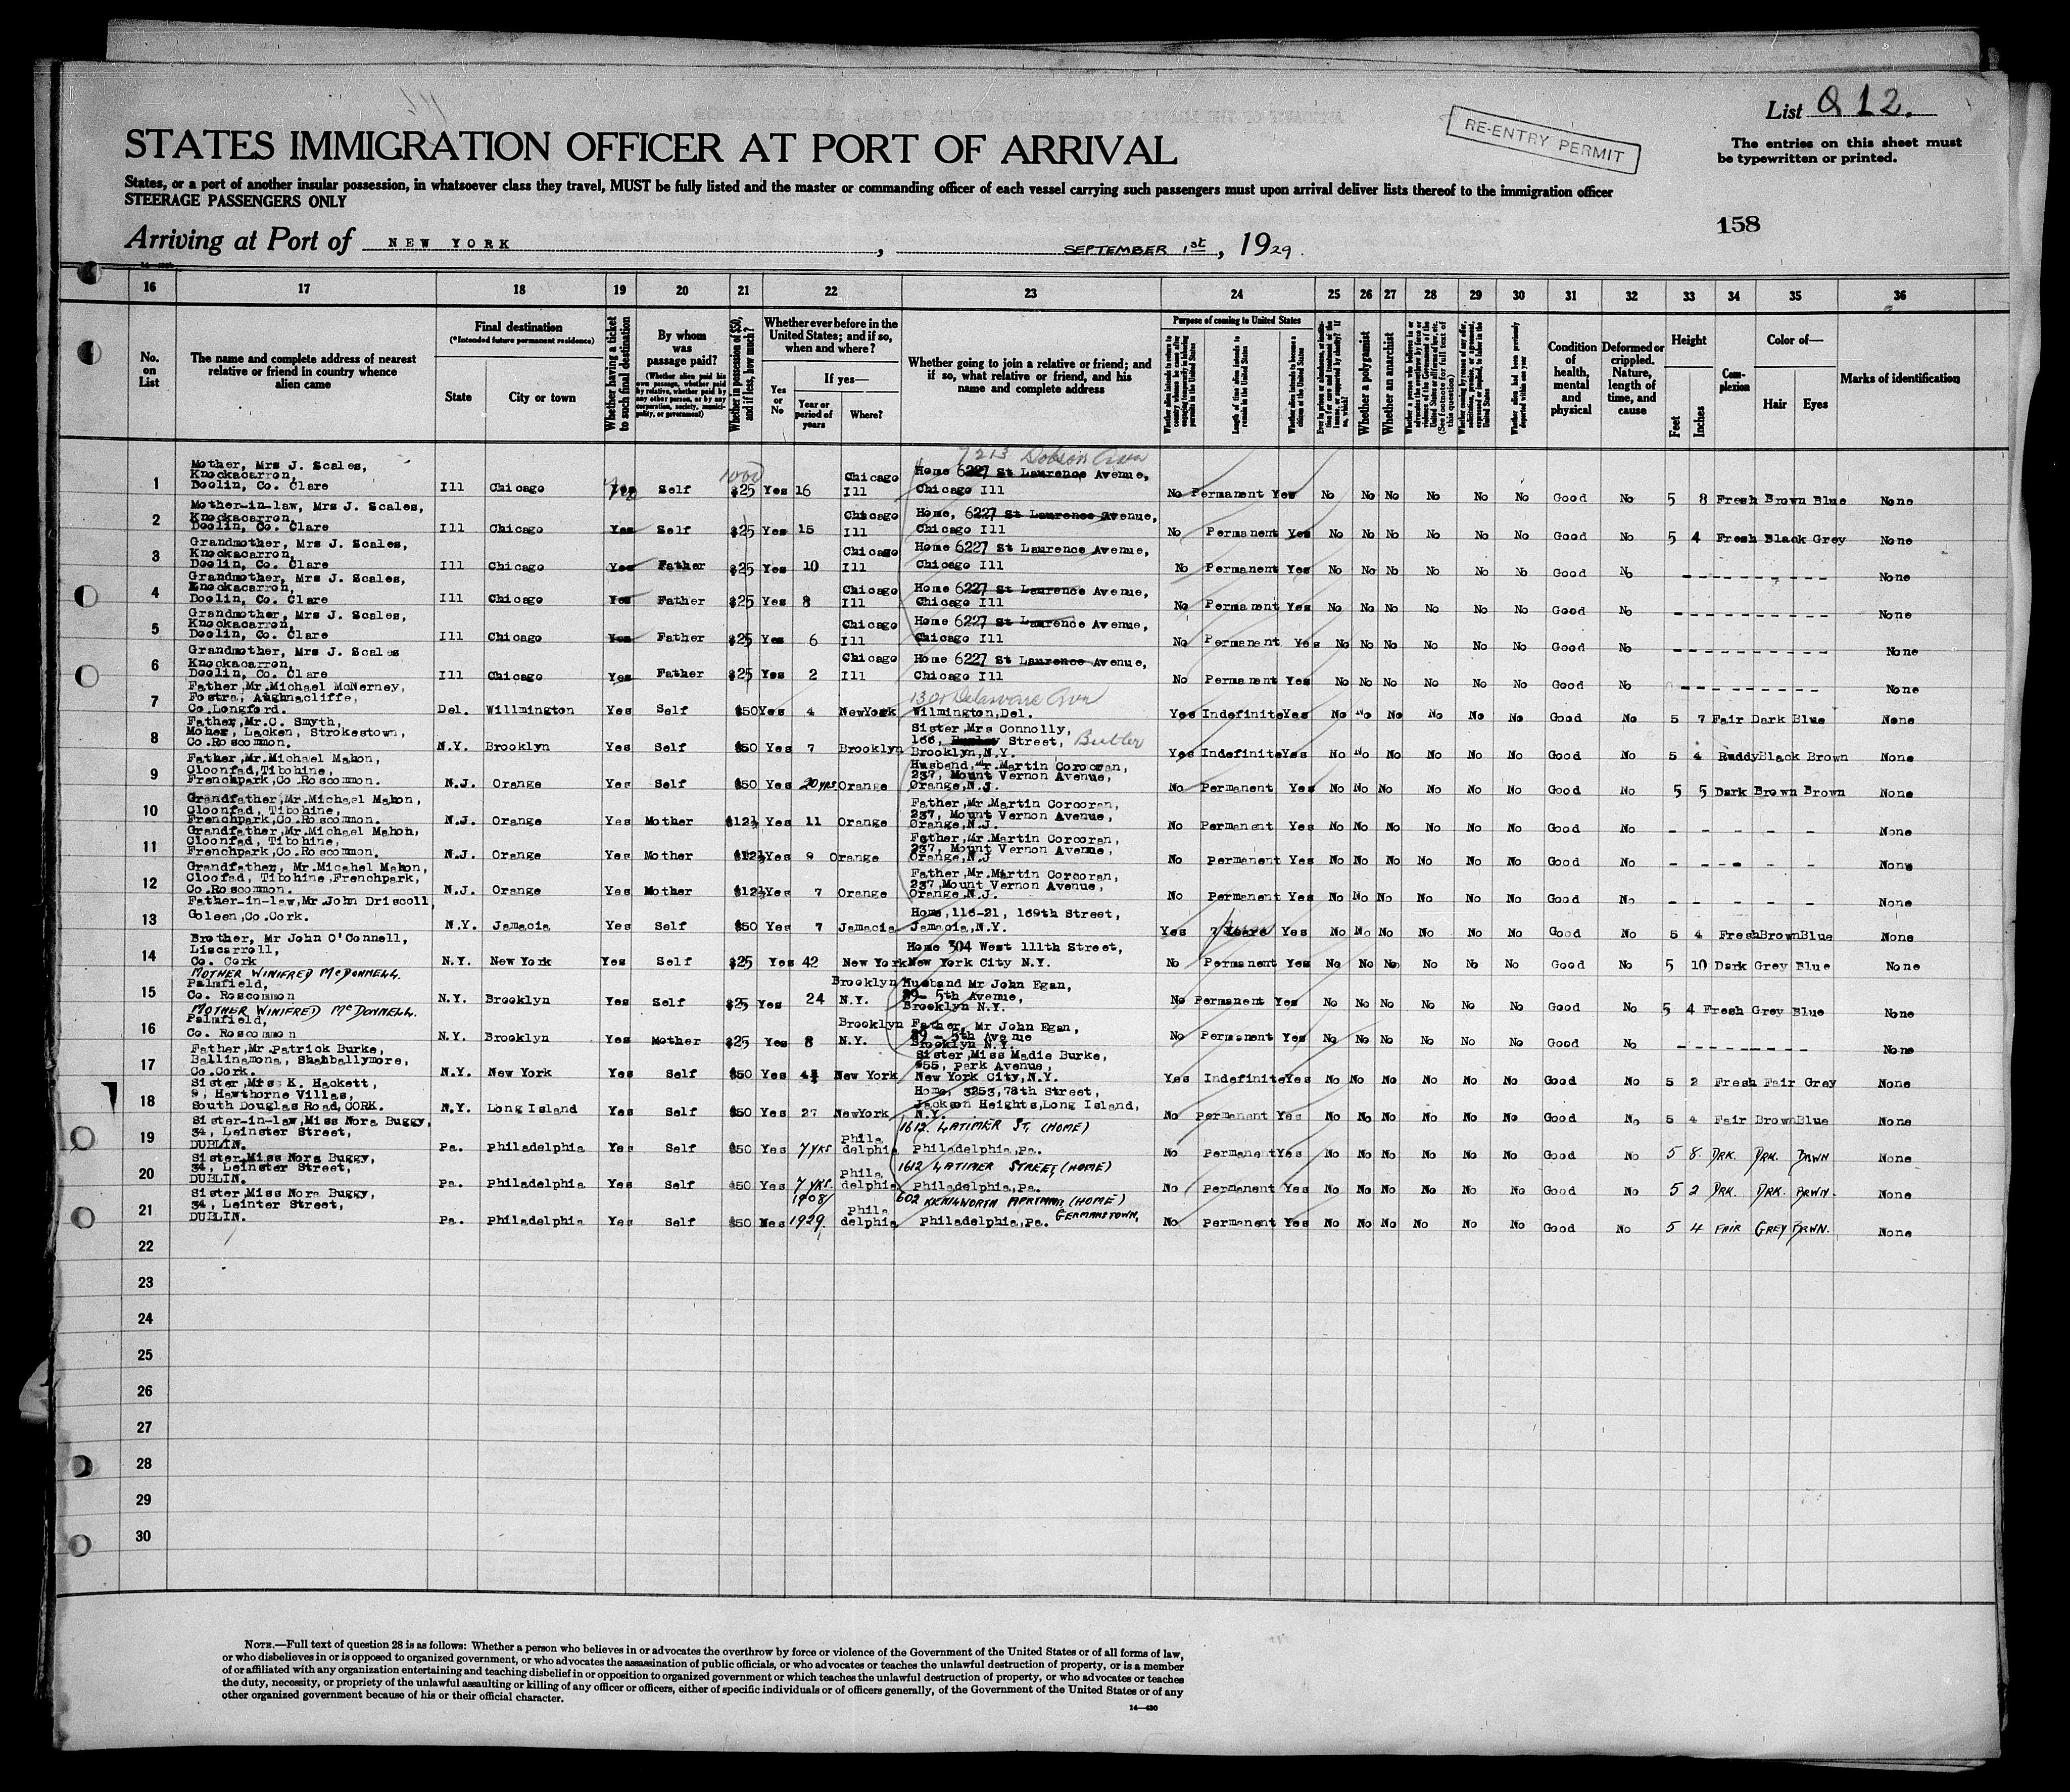 List Q 12.
RE-ENTRY PERMIT
The entries on this sheet must
be typewritten or printed.
STATES IMMIGRATION OFFICER AT PORT OF ARRIVAL
States, or a port of another insular possession, in whatsoever class they travel, MUST be fully listed and the master or commanding officer of each vessel carrying such passengers must upon arrival deliver lists thereof to the immigration officer
STEERAGE PASSENGERS ONLY
158
Arriving at Port of NEW YORK, SEPTEMBER 1st, 1929.
16 17 18 19 20 21 22 23 24 25 26 27 28 29 30 31 32 33 34 35 36
No. on List
The name and complete address of nearest relative or friend in country whence alien came
Final destination
(*Intended future permanent residence)
State
City or town
Whether having a ticket to such final destination
By whom was passage paid?
(Whether alien paid his own passage, whether paid by relative, whether paid by any other person, or by any corporation, society, municipality, or government)
Whether in possession of $50, and if less, how much?
Whether ever before in the United States; and if so, when and where?
Yes or No
If yes—
Year or period of years
Where?
Whether going to join a relative or friend; and if so, what relative or friend, and his name and complete address
Purpose of coming to United States
Length of time alien intends to remain in the United States
Whether alien intends to become a citizen of the United States
Whether a polygamist
Whether an anarchist
Whether alien had been previously deported within one year
Condition of health, mental and physical
Deformed or crippled. Nature, length of time, and cause
Height
Feet
Inches
Complexion
Color of—
Hair
Eyes
Marks of identification
7213 Dobson Aven
1000
1 Mother, Mrs J. Scales, Knockacarron, Doolin, Co. Clare Ill Chicago Yes Self $25 Yes 16 Chicago Ill Home 6227 St Laurence Avenue, Chicago Ill No Permanent Yes No No No No No No Good No 5 8 Fresh Brown Blue None
2 Mother-in-law, Mrs J. Scales, Knockacarron, Doolin, Co. Clare Ill Chicago Yes Self $25 Yes 15 Chicago Ill Home, 6227 St Laurence Avenue, Chicago Ill No Permanent Yes No No No No No No Good No 5 4 Fresh Black Grey None
3 Grandmother, Mrs J. Scales, Knockacarron, Doolin, Co. Clare Ill Chicago Yes Father $25 Yes 10 Chicago Ill Home 6227 St Laurence Avenue, Chicago Ill No Permanent Yes No No No No No No Good No - - - - - - - - - - - - None
4 Grandmother, Mrs J. Scales, Knockacarron, Doolin, Co. Clare Ill Chicago Yes Father $25 Yes 8 Chicago Ill Home 6227 St Laurence Avenue, Chicago Ill No Permanent Yes No No No No No No Good No - - - - - - - - - - - - None
5 Grandmother, Mrs J. Scales, Knockacarron, Doolin, Co. Clare Ill Chicago Yes Father $25 Yes 6 Chicago Ill Home 6227 St Laurence Avenue, Chicago Ill No Permanent Yes No No No No No No Good No - - - - - - - - - - - - None
6 Grandmother, Mrs J. Scales Knockacarron, Doolin, Co. Clare Ill Chicago Yes Father $25 Yes 2 Chicago Ill Home 6227 St Laurence Avenue, Chicago Ill No Permanent Yes No No No No No No Good No - - - - - - - - - - - - None
7 Father,Mr.Michael McNerney, Fostra, Aughnacliffe, Co.Longford. Del. Willmington Yes Self $50 Yes 4 NewYork 1301 Delaware Aven Wilmington,Del. Yes Indefinite Yes No No No No No No Good No 5 7 Fair Dark Blue None
8 Father,Mr.C. Smyth, Moher, Lacken, Strokestown, Co.Roscommon. N.Y. Brooklyn Yes Self $50 Yes 7 Brooklyn Sister,Mrs Connolly, 166, Street, Butler Brooklyn,N.Y. Yes Indefinite Yes No No No No No No Good No 5 4 Ruddy Black Brown None
9 Father,Mr.Michael Mahon, Cloonfad,Tibohine, Frenchpark,Co.Roscommon. N.J. Orange Yes Self $50 Yes 20 yrs Orange Husband,Mr.Martin Corcoran, 237, Mount Vernon Avenue, Orange,N.J. No Permanent Yes No No No No No No Good No 5 5 Dark Brown Brown None
10 Grandfather,Mr.Michael Mahon, Cloonfad, Tibohine, Frenchpark,Co.Roscommon. N.J. Orange Yes Mother $12½ Yes 11 Orange Father,Mr.Martin Corcoran, 237, Mount Vernon Avenue, Orange,N.J. No Permanent Yes No No No No No No Good No - - - - - None
11 Grandfather,Mr.Michael Mahon, Cloonfad, Tibohine, Frenchpark,Co.Roscommon. N.J. Orange Yes Mother $12½ Yes 9 Orange Father,Mr.Martin Corcoran, 237, Mount Vernon Avenue, Orange,N.J No Permanent Yes No No No No No No Good No - - - - - None
12 Grandfather, Mr.Micahel Mahon, Cloofad, Tibohine,Frenchpark, Co.Roscommon. N.J. Orange Yes Mother $12½ Yes 7 Orange Father,Mr.Martin Corcoran, 237,Mount Vernon Avenue, Orange,N.J. No Permanent Yes No No No No No No Good No - - - - - None
13 Father-in-law,Mr.John Driscoll, Goleen,Co.Cork. N.Y. Jamacia Yes Self $50 Yes 7 Jamacia Home,116-21, 169th Street, Jamacia,N.Y. Yes 7 Years Yes No No No No No No Good No 5 4 Fresh Brown Blue None
14 Brother, Mr John O'Connell, Liscarroll, Co. Cork N.Y. New York Yes Self $25 Yes 42 New York Home 304 West 111th Street, New York City N.Y. No Permanent Yes No No No No No No Good No 5 10 Dark Grey Blue None
15 MOTHER WINIFRED McDONNELL. Palmfield, Co. Roscommon N.Y. Brooklyn Yes Self $25 Yes 24 Brooklyn N.Y. Husband Mr John Egan, 5th Avenue, Brooklyn N.Y. No Permanent Yes No No No No No No Good No 5 4 Fresh Grey Blue None
16 MOTHER WINIFRED McDONNELL. Palmfield, Co. Roscommon N.Y. Brooklyn Yes Mother $25 Yes 8 Brooklyn N.Y. Father, Mr John Egan, 5th Avenue Brooklyn N.Y. No Permanent Yes No No No No No No Good No - - - - - - - - - None
17 Father,Mr.Patrick Burke, Ballinamona, Shanballymore, Co.Cork. N.Y. New York Yes Self $50 Yes New York Sister,Miss Madie Burke, 955, Park Avenue, New York City,N.Y. Yes Indefinite Yes No No No No No No Good No 5 2 Fresh Fair Grey None
18 Sister,Miss K. Hackett, 9, Hawthorne Villas, South Douglas Road,CORK. N.Y. Long Island Yes Self $50 Yes 27 NewYork Home, 3253,78th Street, Jackson Heights,Long Island, N.Y. No Permanent Yes No No No No No No Good No 5 4 Fair Brown Blue None
19 Sister-in-law,Miss Nora Buggy, 34, Leinster Street, DUBLIN. Pa. Philadelphia Yes Self $50 Yes 7 yrs Phila delphia 1612. LATIMER ST. (HOME) Philadelphia,Pa. No Permanent Yes No No No No No No Good No 5 8. DRK. DRK. BRWN None
20 Sister,Miss Nora Buggy, 34, Leinster Street, DUBLIN. Pa. Philadelphia Yes Self $50 Yes 7 yrs. Phila delphia 1612 LATIMER STREET, (HOME) Philadelphia,Pa. No Permanent Yes No No No No No No Good No 5 2 DRK. DRK. BRWN. None
21 Sister,Miss Nora Buggy, 34, Leinter Street, DUBLIN. Pa. Philadelphia Yes Self $50 Yes 1908/1929 Phila delphia 602 KENILWORTH (HOME) GERMANSTOWN, Philadelphia,Pa. No Permanent Yes No No No No No No Good No 5 4 FAIR GREY BRWN. None
22
23
24
25
26
27
28
29
30
NOTE.—Full text of question 28 is as follows: Whether a person who believes in or advocates the overthrow by force or violence of the Government of the United States or of all forms of law,
or who disbelieves in or is opposed to organized government, or who advocates the assassination of public officials, or who advocates or teaches the unlawful destruction of property, or is a member
of or affiliated with any organization entertaining and teaching disbelief in or opposition to organized government or which teaches the unlawful destruction of property, or who advocates or teaches
the duty, necessity, or propriety of the unlawful assaulting or killing of any officer or officers, either of specific individuals or of officers generally, of the Government of the United States or of any
other organized government because of his or their official character.
14—430